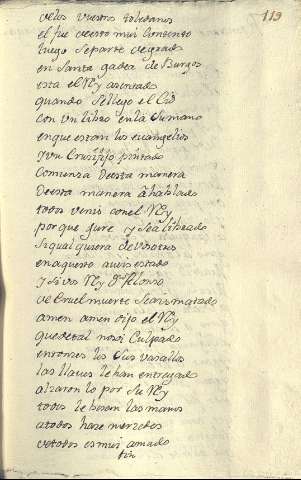 119
velos vuestros toledanos
el fue de esto mui contento
luego se parte de grado
en santa gadea de Burgos
esta el Rey asentado
quando se llego el Cid
con un libro en la su mano
en que estan los euangelios
y un Crusifijo pintado
Comiensa desta manera
desta manera a hablado
todos venis con el Rey
porque jure y sea librado
si qual quiera de vosotros
en aquesto aueis estado
y si vos Rey Dn Alonso
de cruel muerte seais matado
amen amen dijo el Rey
que de tal no soi culpado
entonses los sus vasallos
las llaues le han entregado
alsaron lo por su Rey
todos le besan las manos
a todos hase mersedes
de todos es mui amado
fin